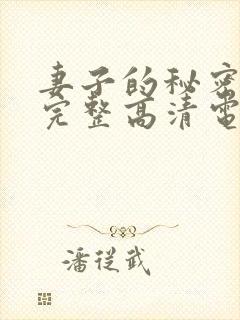 妻子的秘密
完整高清電
潘從武